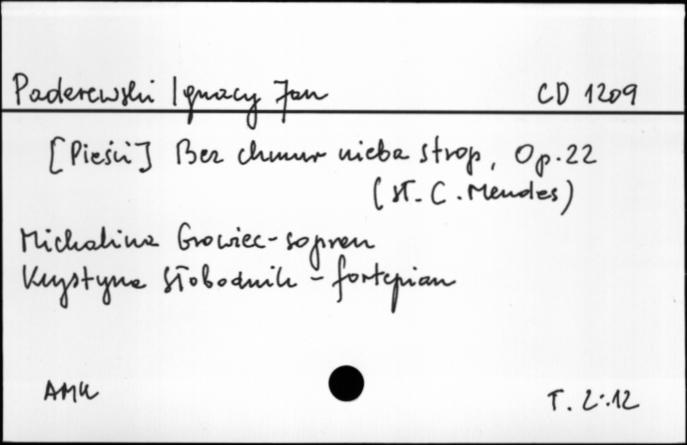 Paderewski Ignacy Jan CD 1209
[Pieśń] Bez chmur nieba strop, Op. 22
(sł. C. Mendes)
Michalina Growiec - sopran
Krystyna Słobodnik - fortepian
AMK T. 2:12